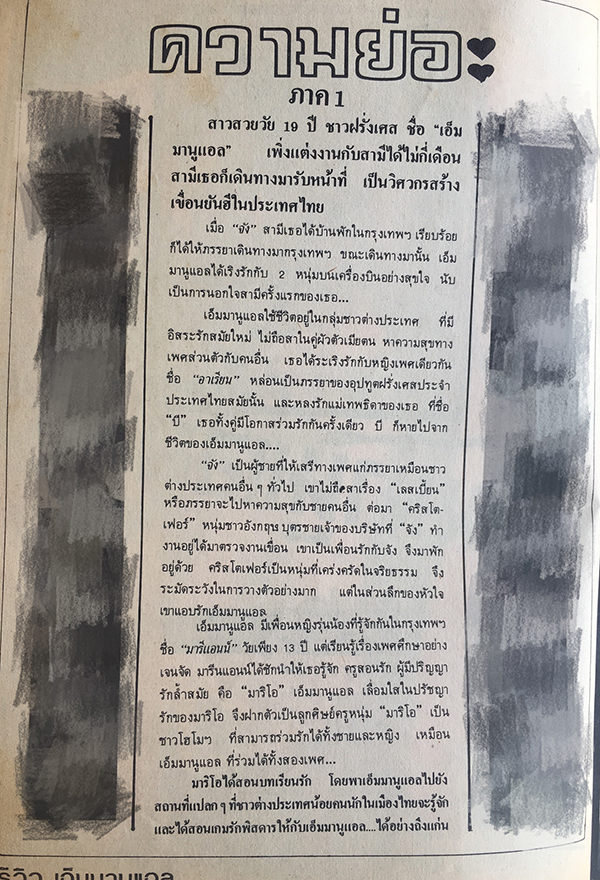 ความย่อ
ภาค 1
สาวสวยวัย 19 ปี ชาวฝรั่งเศส ชื่อ "เอ็ม
มานูแอล" เพิ่งแต่งงานกับสามีได้ไม่กี่เดือน
สามีเธอก็เดินทางมารับหน้าที่ เป็นวิศวกรสร้าง
เขื่อนยันฮีในประเทศไทย
เมื่อ "จัง" สามีเธอได้บ้านพักในกรุงเทพฯ เรียบร้อย
ก็ได้ให้ภรรยาเดินทางมากรุงเทพฯ ขณะเดินทางมานั้น เอ็ม
มานูแอลได้เริงรักกับ 2 หนุ่มบนเครื่องบินอย่างสุขใจ นับ
เป็นการนอกใจสามีครั้งแรกของเธอ...
เอ็มมานูแอลใช้ชีวิตอยู่ในกลุ่มชาวต่างประเทศ ที่มี
อิสระรักสมัยใหม่ ไม่ถือสาในคู่ผัวตัวเมียตน หาความสุขทาง
เพศส่วนตัวกับคนอื่น เธอได้ระเริงรักกับหญิงเพศเดียวกัน
ชื่อ "อาเรียน" หล่อนเป็นภรรยาของอุปทูตฝรั่งเศสประจำ
ประเทศไทยสมัยนั้น และหลงรักแม่เทพธิดาของเธอ ที่ชื่อ
"บี" เธอทั้งคู่มีโอกาสร่วมรักกันครั้งเดียว บี ก็หายไปจาก
ชีวิตของเอ็มมานูแอล....
"จัง" เป็นผู้ชายที่ให้เสรีทางเพศแก่ภรรยาเหมือนชาว
ต่างประเทศคนอื่น ๆ ทั่วไป เขาไม่ถือสาเรื่อง "เลสเบี้ยน"
หรือภรรยาจะไปหาความสุขกับชายคนอื่น ต่อมา "คริสโต-
เฟอร์" หนุ่มชาวอังกฤษ บุตรชายเจ้าของบริษัทที่ "จัง" ทำ
งานอยู่ได้มาตรวจงานเขื่อน เขาเป็นเพื่อนรักกับจัง จึงมาพัก
อยู่ด้วย คริสโตเฟอร์เป็นหนุ่มที่เคร่งครัดในจริยธรรม จึง
ระมัดระวังในการวางตัวอย่างมาก แต่ในส่วนลึกของหัวใจ
เขาแอบรักเอ็มมานูแอล
เอ็มมานูแอล มีเพื่อนหญิงรุ่นน้องที่รู้จักกันในกรุงเทพฯ
ชื่อ "มารีแอนน์" วัยเพียง 13 ปี แต่เรียนรู้เรื่องเพศศึกษาอย่าง
เจนจัด มารีนแอนน์ได้ชักนำให้เธอรู้จัก ครูสอนรัก ผู้มีปริญญา
รักล้ำสมัย คือ "มาริโอ" เอ็มมานูแอล เลื่อมใสในปรัชญา
รักของมาริโอ จึงฝากตัวเป็นลูกศิษย์ครูหนุ่ม "มาริโอ" เป็น
ชาวโฮโมฯ ที่สามารถร่วมรักได้ทั้งชายและหญิง เหมือน
เอ็มมานูแอล ที่ร่วมได้ทั้งสองเพศ...
มาริโอได้สอนบทเรียนรัก โดยพาเอ็มมานูแอลไปยัง
สถานที่แปลก ๆ ที่ชาวต่างประเทศน้อยคนนักในเมืองไทยจะรู้จัก
และได้สอนเกมรักพิสดารให้กับเอ็มมานูแอล....ได้อย่างถึงแก่น